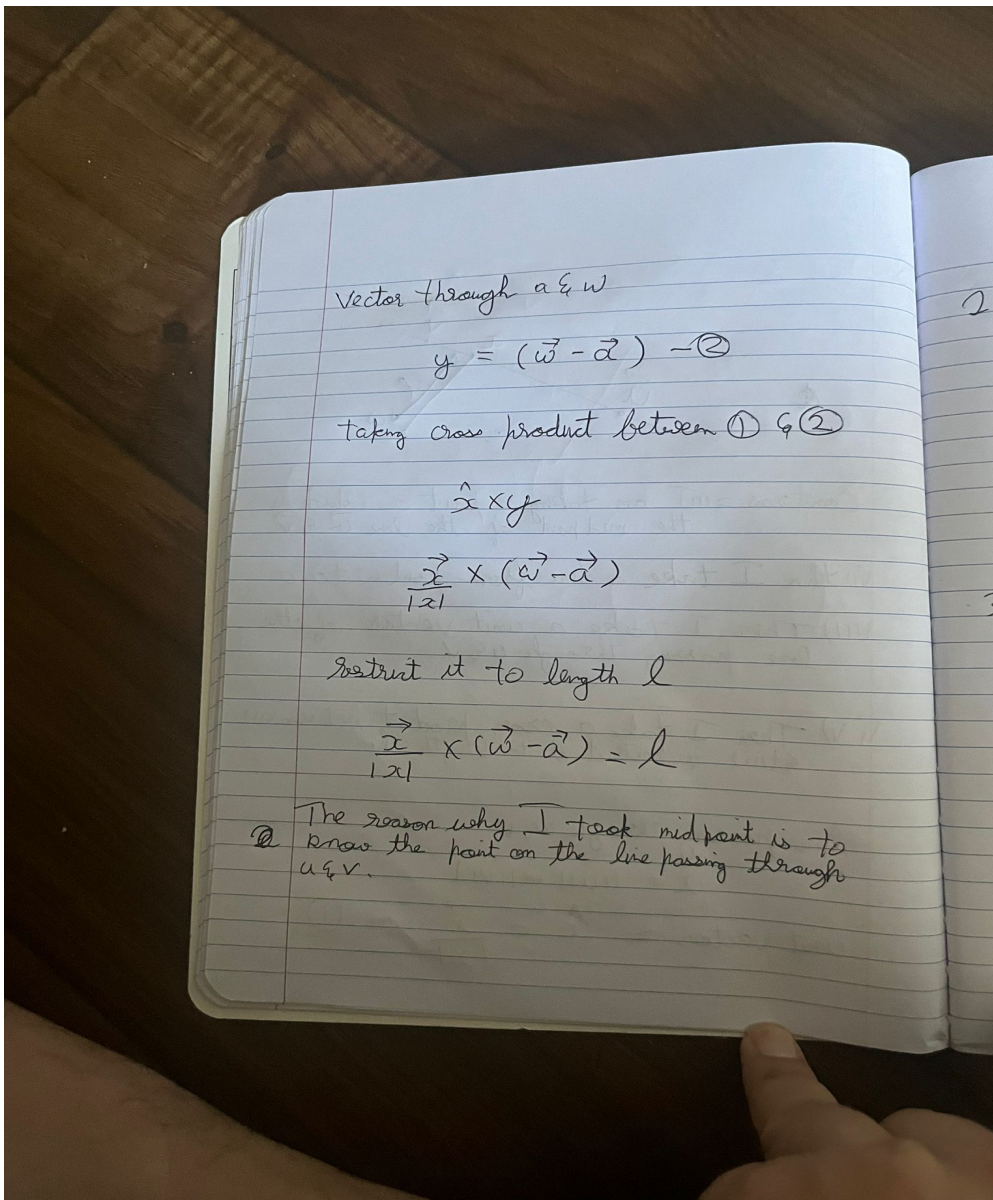 Vector through a & w
y = (w⃗ - a⃗) - ②
taking cross product between ① & ②
x̂ × y
x⃗/|x| × (w⃗ - a⃗)
Restrict it to length l
x⃗/|x| × (w⃗ - a⃗) = l
The reason why I took midpoint is to
know the point on the line passing through
u & v.
2